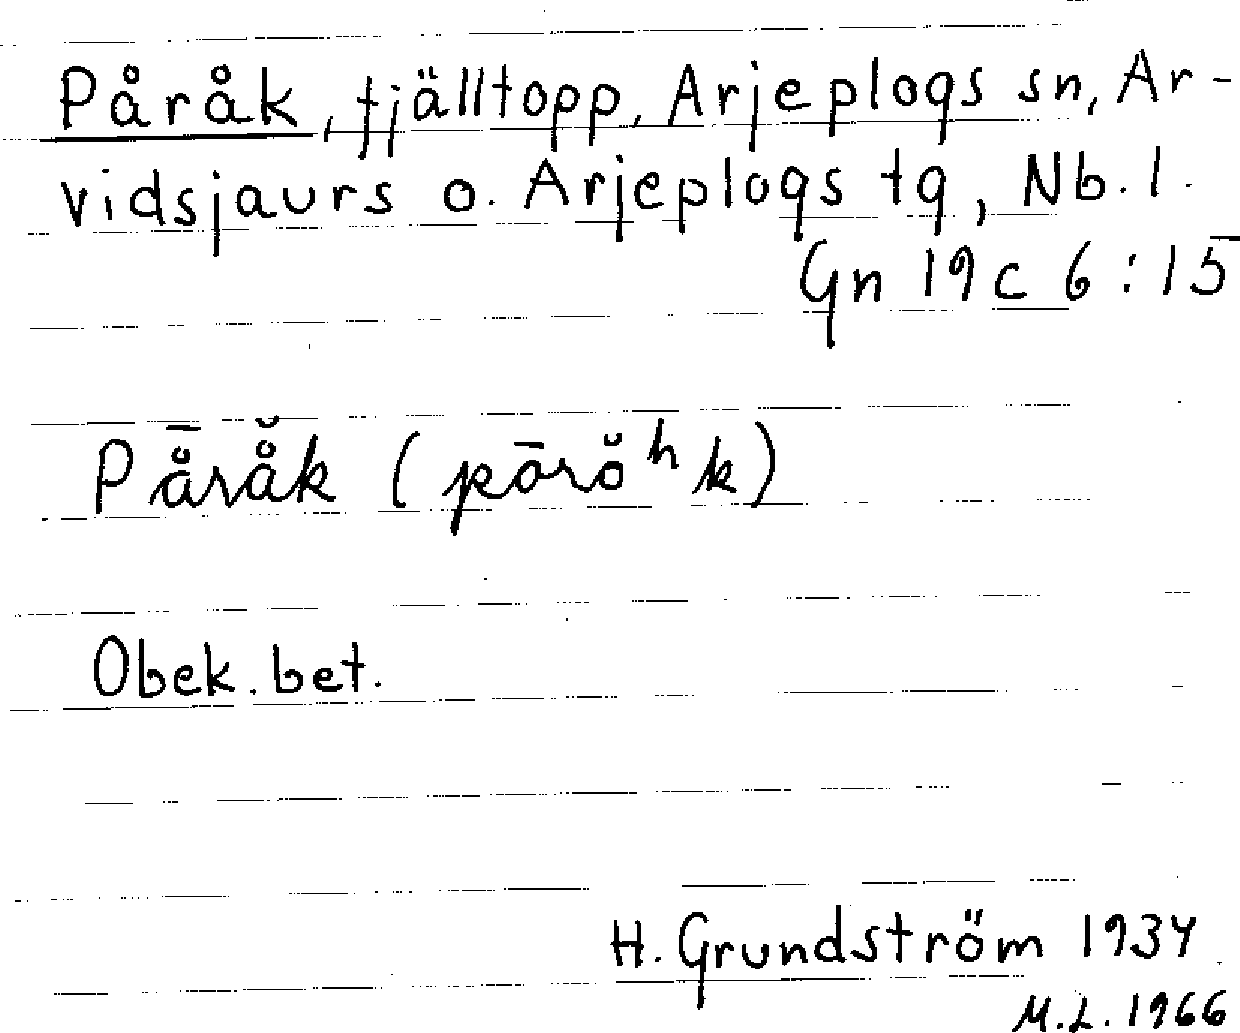 Påråk, fjälltopp, Arjeplogs sn, Ar-
vidsjaurs o. Arjeplogs tg, Nb. l.
Gn 19 c 6 : 15
På̄rå̆k (pōrŏʰk)
Obek. bet.
H. Grundström 1934
M.L. 1966